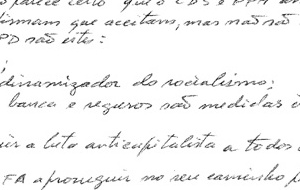 parece certo que o CDS e PPM
firmam que aceitam, mas não são
PD são estes:
dinamizador do socialismo;
banca e seguros são medidas
a luta anticapitalista a todos
FA a prosseguir no seu caminho